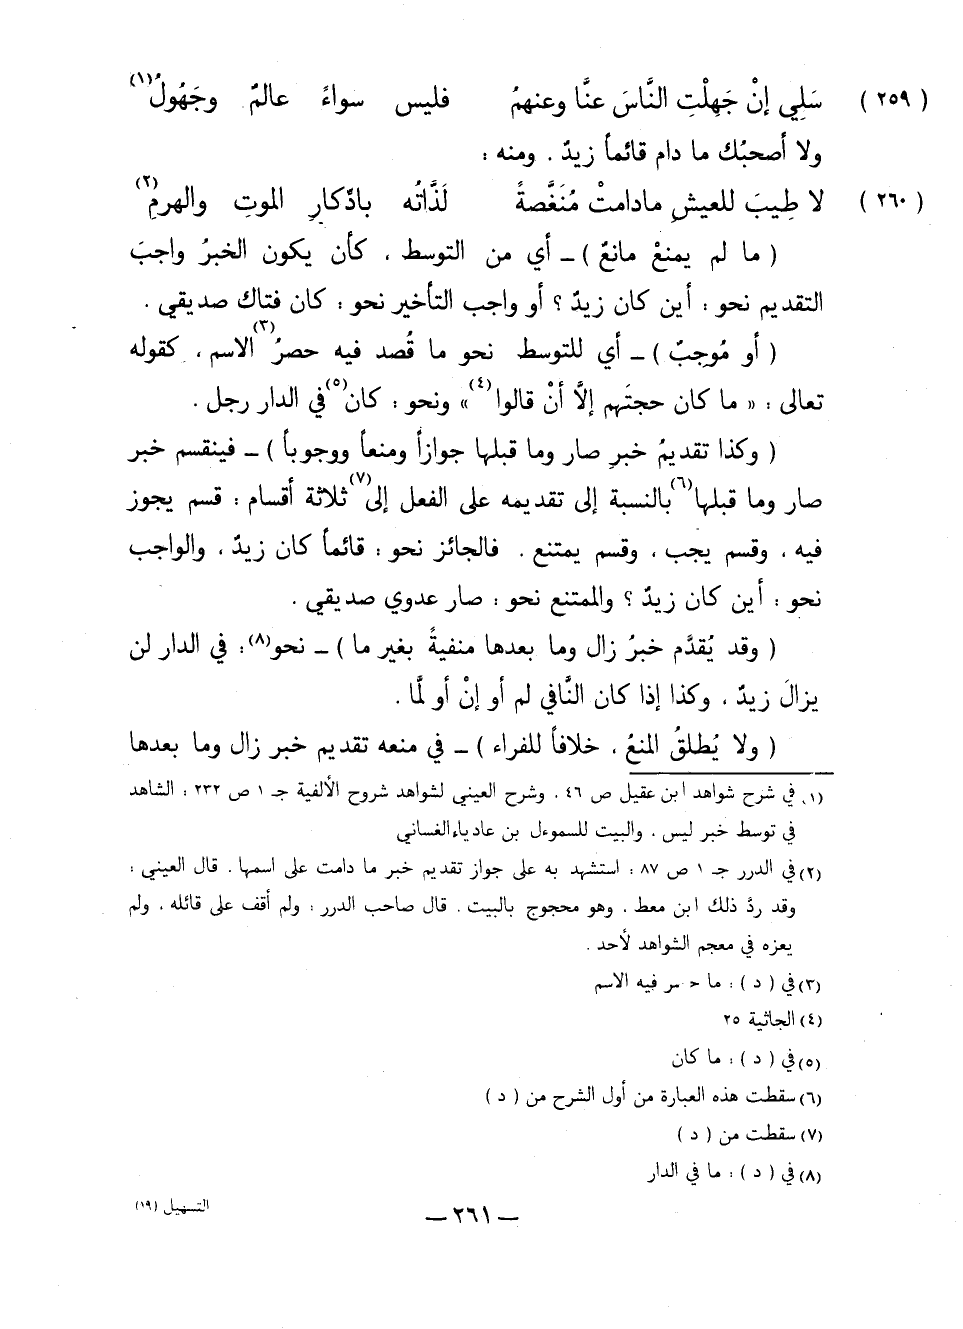 ( ٢٥٩ ) سَلِي إنْ جَهِلْتِ النَّاسَ عنَّا وعنهمُ فليس سواءً عالمٌ وجَهُولُ(١)
ولا أصحبُك ما دام قائماً زيدٌ . ومنه :
( ٢٦٠ ) لا طِيبَ للعيشِ مادامتْ مُنَغَّصةً لَذَّاتُه باذّكارِ الموتِ والهرمِ(٢)
( ما لم يمنعْ مانعٌ ) ــ أي من التوسط ، كأن يكون الخبرُ واجبَ
التقديم نحو : أين كان زيدٌ ؟ أو واجب التأخير نحو : كان فتاك صديقي .
( أو مُوجِبٌ ) ــ أي للتوسط نحو ما قُصد فيه حصرُ(٣) الاسم ، كقوله
تعالى : « ما كان حجتَهم إلَّا أنْ قالوا(٤) » ونحو : كان(٥) في الدار رجل .
( وكذا تقديمُ خبرِ صار وما قبلها جوازاً ومنعاً ووجوباً ) ــ فينقسم خبر
صار وما قبلها(٦) بالنسبة إلى تقديمه على الفعل إلى(٧) ثلاثة أقسام : قسم يجوز
فيه ، وقسم يجب ، وقسم يمتنع . فالجائز نحو : قائماً كان زيدٌ ، والواجب
نحو : أين كان زيدٌ ؟ والممتنع نحو : صار عدوي صديقي .
( وقد يُقدَّم خبرُ زال وما بعدها منفيةً بغير ما ) ــ نحو(٨) : في الدار لن
يزالَ زيدٌ ، وكذا إذا كان النَّافي لم أو إنْ أو لمَّا .
( ولا يُطلقُ المنعُ ، خلافاً للفراء ) ــ في منعه تقديم خبر زال وما بعدها
(١) في شرح شواهد ابن عقيل ص ٤٦ . وشرح العيني لشواهد شروح الألفية جـ ١ ص ٢٣٢ : الشاهد
في توسط خبر ليس . والبيت للسموءل بن عادياء الغساني
(٢) في الدرر جـ ١ ص ٨٧ : استشهد به على جواز تقديم خبر ما دامت على اسمها . قال العيني :
وقد ردَّ ذلك ابن معط . وهو محجوج بالبيت . قال صاحب الدرر : ولم أقف على قائله ، ولم
يعزه في معجم الشواهد لأحد .
(٣) في ( د ) : ما فيه الاسم
(٤) الجاثية ٢٥
(٥) في ( د ) : ما كان
(٦) سقطت هذه العبارة من أول الشرح من ( د )
(٧) سقطت من ( د )
(٨) في ( د ) : ما في الدار
ــ ٢٦١ ــ
التسهيل (١٩)